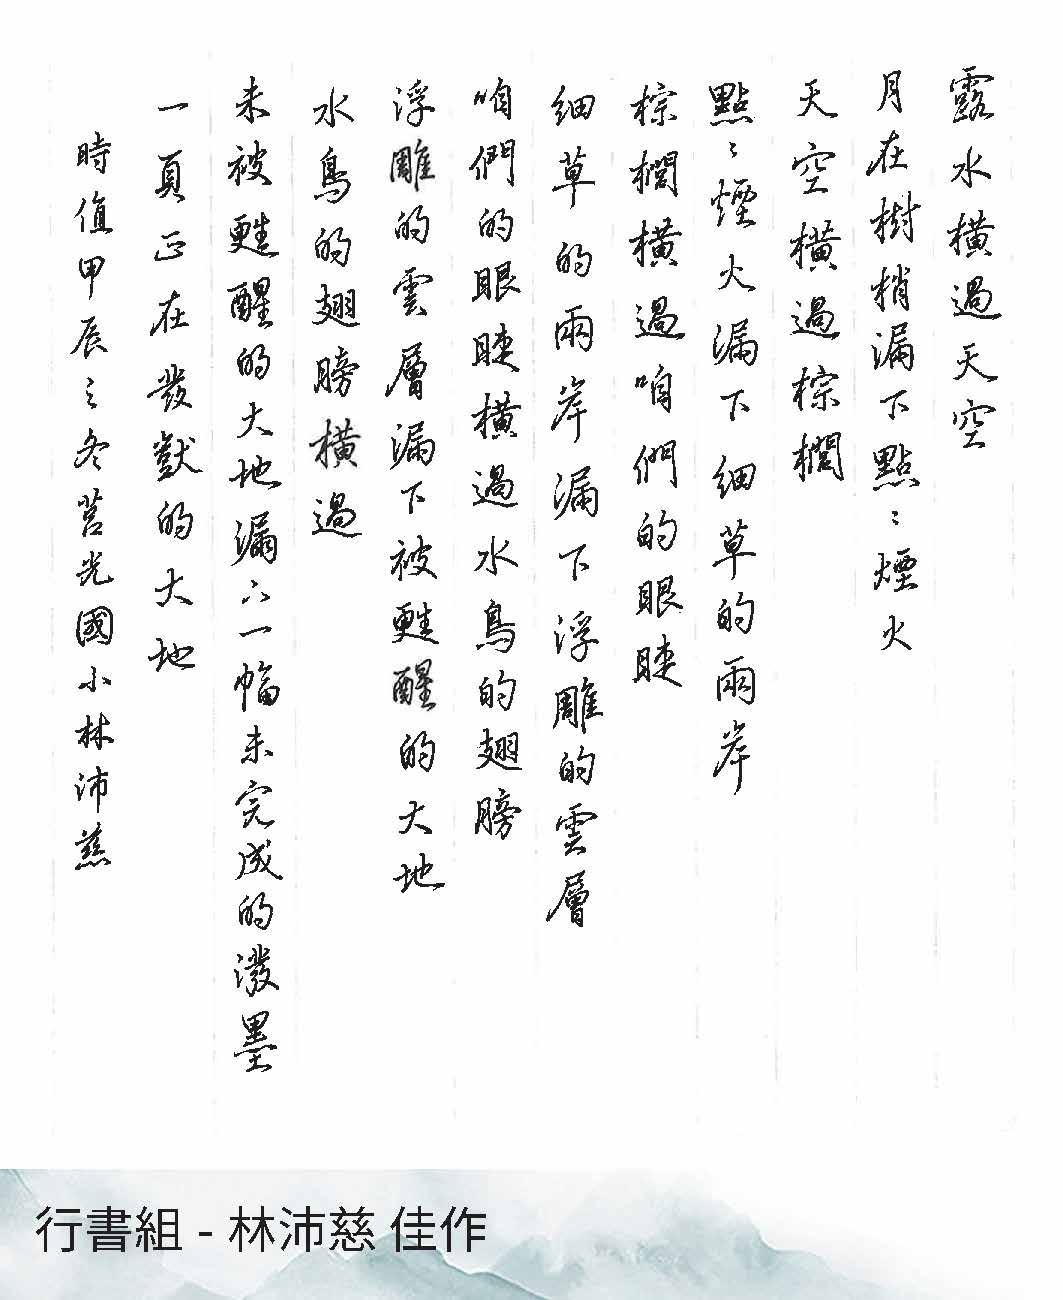 露水橫過天空
月在樹梢漏下點〻煙火
天空橫過棕櫚
點〻煙火漏下細草的兩岸
棕櫚橫過咱們的眼睫
細草的兩岸漏下浮雕的雲層
咱們的眼睫橫過水鳥的翅膀
浮雕的雲層漏下被甦醒的大地
水鳥的翅膀橫過
未被甦醒的大地漏下一幅未完成的潑墨
一頁正在發獃的大地
時值甲辰之冬莒光國小林沛慈
行書組 - 林沛慈 佳作